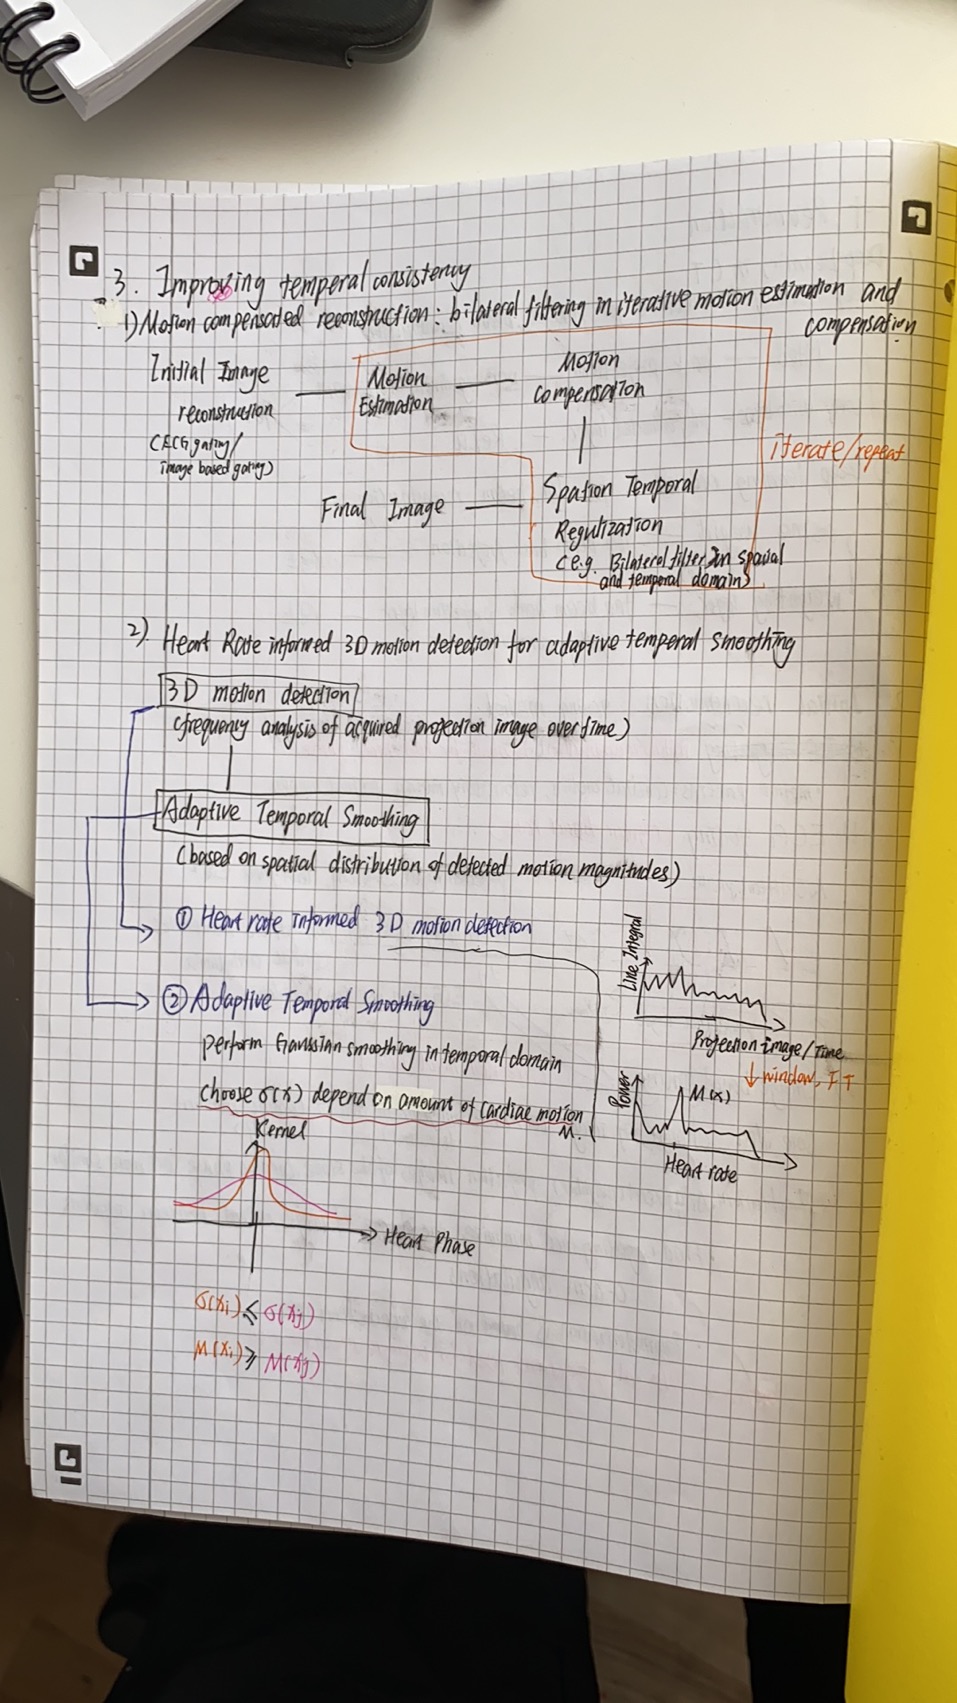 3. Improving temperal consistency
1) Motion compensated reconstruction: bilateral filtering in iterative motion estimation and
compensation
Initial Image
reconstruction
(ECG gating/
image based gating)
Motion
Estimation
Motion
Compensation
iterate/repeat
Spation Temporal
Regulization
(e.g. Bilateral filter in spatial
and temporal domain)
Final Image
2) Heart Rate informed 3D motion detection for adaptive temperal smoothing
3D motion detection
(frequency analysis of acquired projection image over time)
Adaptive Temporal Smoothing
(based on spatial distribution of detected motion magnitudes)
① Heart rate informed 3D motion detection
② Adaptive Temporal Smoothing
perform Gaussian smoothing in temporal domain
choose σ(x) depend on amount of cardiac motion
M.
Line Integral
Projection image/Time
↓ window, FT
Power
M(x)
Heart rate
Kernel
Heart Phase
σ(xi) ≤ σ(xj)
M(xi) ≥ M(xj)